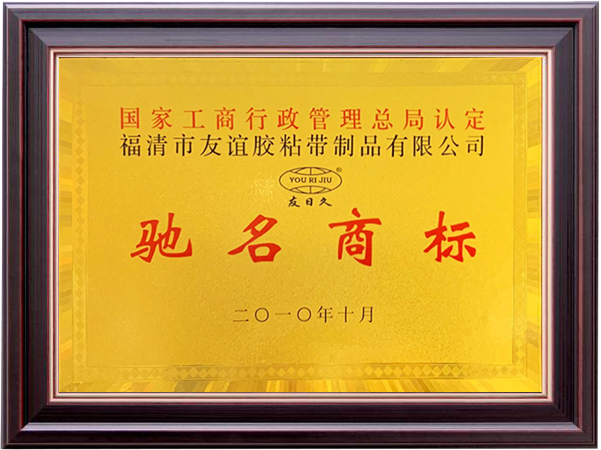 国家工商行政管理总局认定
福清市友谊胶粘带制品有限公司
YOU RI JIU ®
友日久
驰名商标
二〇一〇年十月